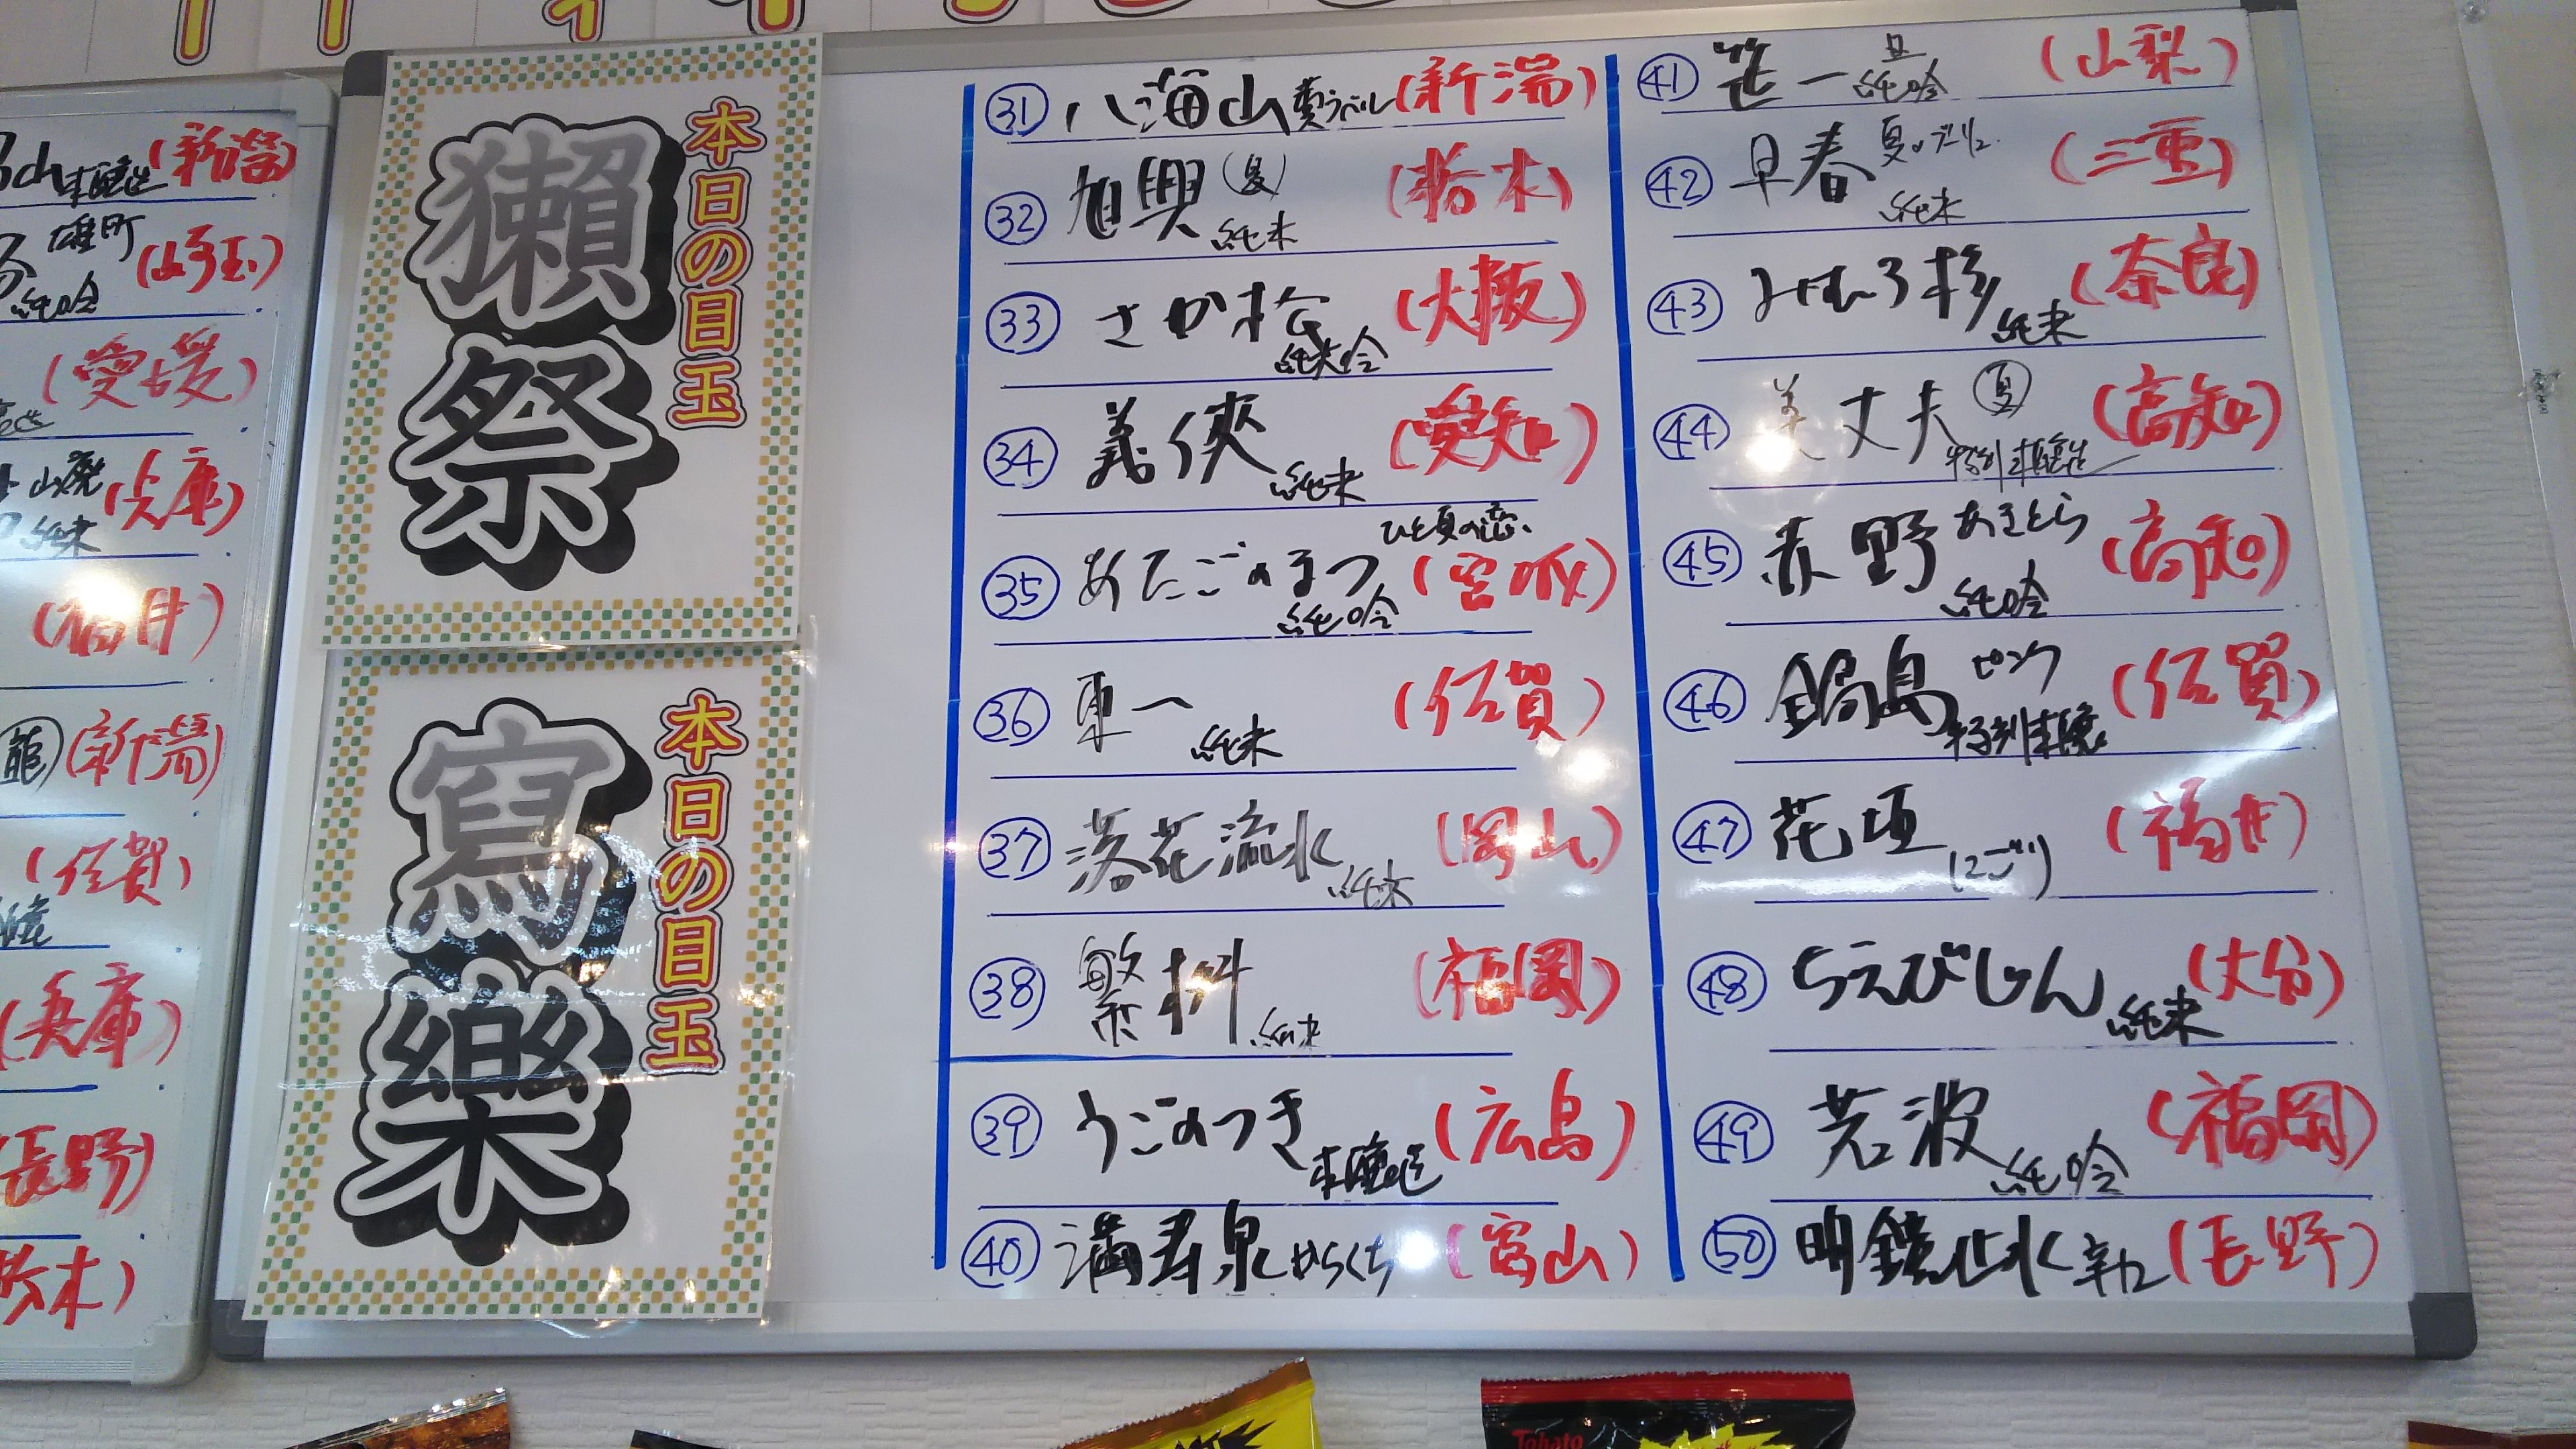 山 本醸造 (新潟)
雄町
純吟 (埼玉)
(愛媛)
山廃
純米 (兵庫)
(福井)
龍 (新潟)
(佐賀)
(兵庫)
(長野)
(栃木)
本日の目玉
獺祭
本日の目玉
寫樂
㉛ 八海山 (新潟)
㉜ 旭興 (夏) 純米 (栃木)
㉝ さか松 純米吟 (大阪)
㉞ 義侠 純米 (愛知)
㉟ あたごのまつ ひと夏の恋 純吟 (宮城)
㊱ 東一 純米 (佐賀)
㊲ 落花流水 純米 (岡山)
㊳ 繁桝 純米 (福岡)
㊴ うごのつき 本醸造 (広島)
㊵ 満寿泉 からくち (富山)
㊶ 笹一 旦 純吟 (山梨)
㊷ 早春 純米 (三重)
㊸ みむろ杉 純米 (奈良)
㊹ 美丈夫 夏 特別本醸造 (高知)
㊺ 赤野 あきとら 純吟 (高知)
㊻ 鍋島 ピンク 特別本醸 (佐賀)
㊼ 花垣 (にごり) (福井)
㊽ ちえびじん 純米 (大分)
㊾ 若波 純吟 (福岡)
㊿ 明鏡止水 辛口 (長野)
Tohato